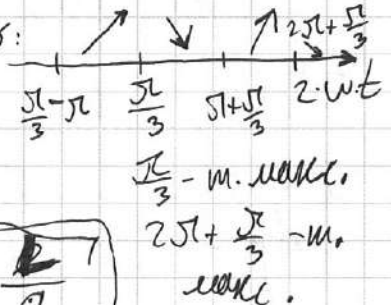 2π + π/3
π/3 - π π/3 π + π/3 2·ω·t
π/3 - т. макс.
2π + π/3 - т.
макс.